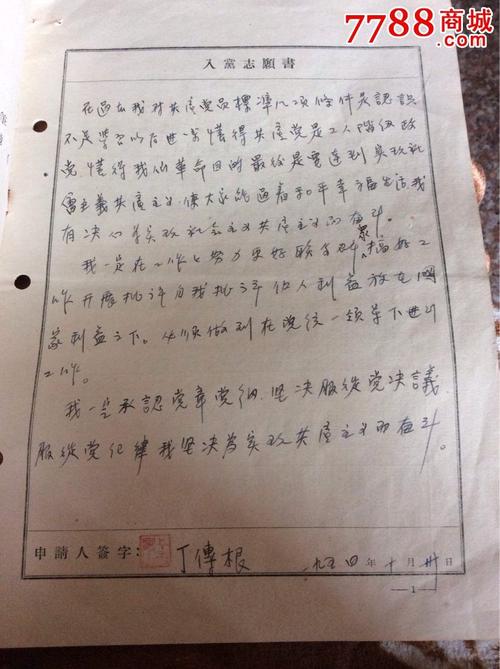 7788商城
入黨志願書
在過去我对共産党员標準八項條件是認識
不足學習以后进一步懂得共產党是工人階級政
党懂得我们革命目的最终是要達到实现社
會主義共產主义使大家能过着和平幸福生活我
有决心為实现社会主义共產主义而奋斗。
我一定在工作上努力更好联系群衆搞好工
作开展批評自我批評個人利益放在國
家利益之下。必須做到在党统一領导下进行
工作。
我一定承認党章党纲.坚决服從党决議
服從党纪律我坚决为实现共產主义而奋斗。
申請人簽字:
丁傳根
一九五四年十月卅日
—1—